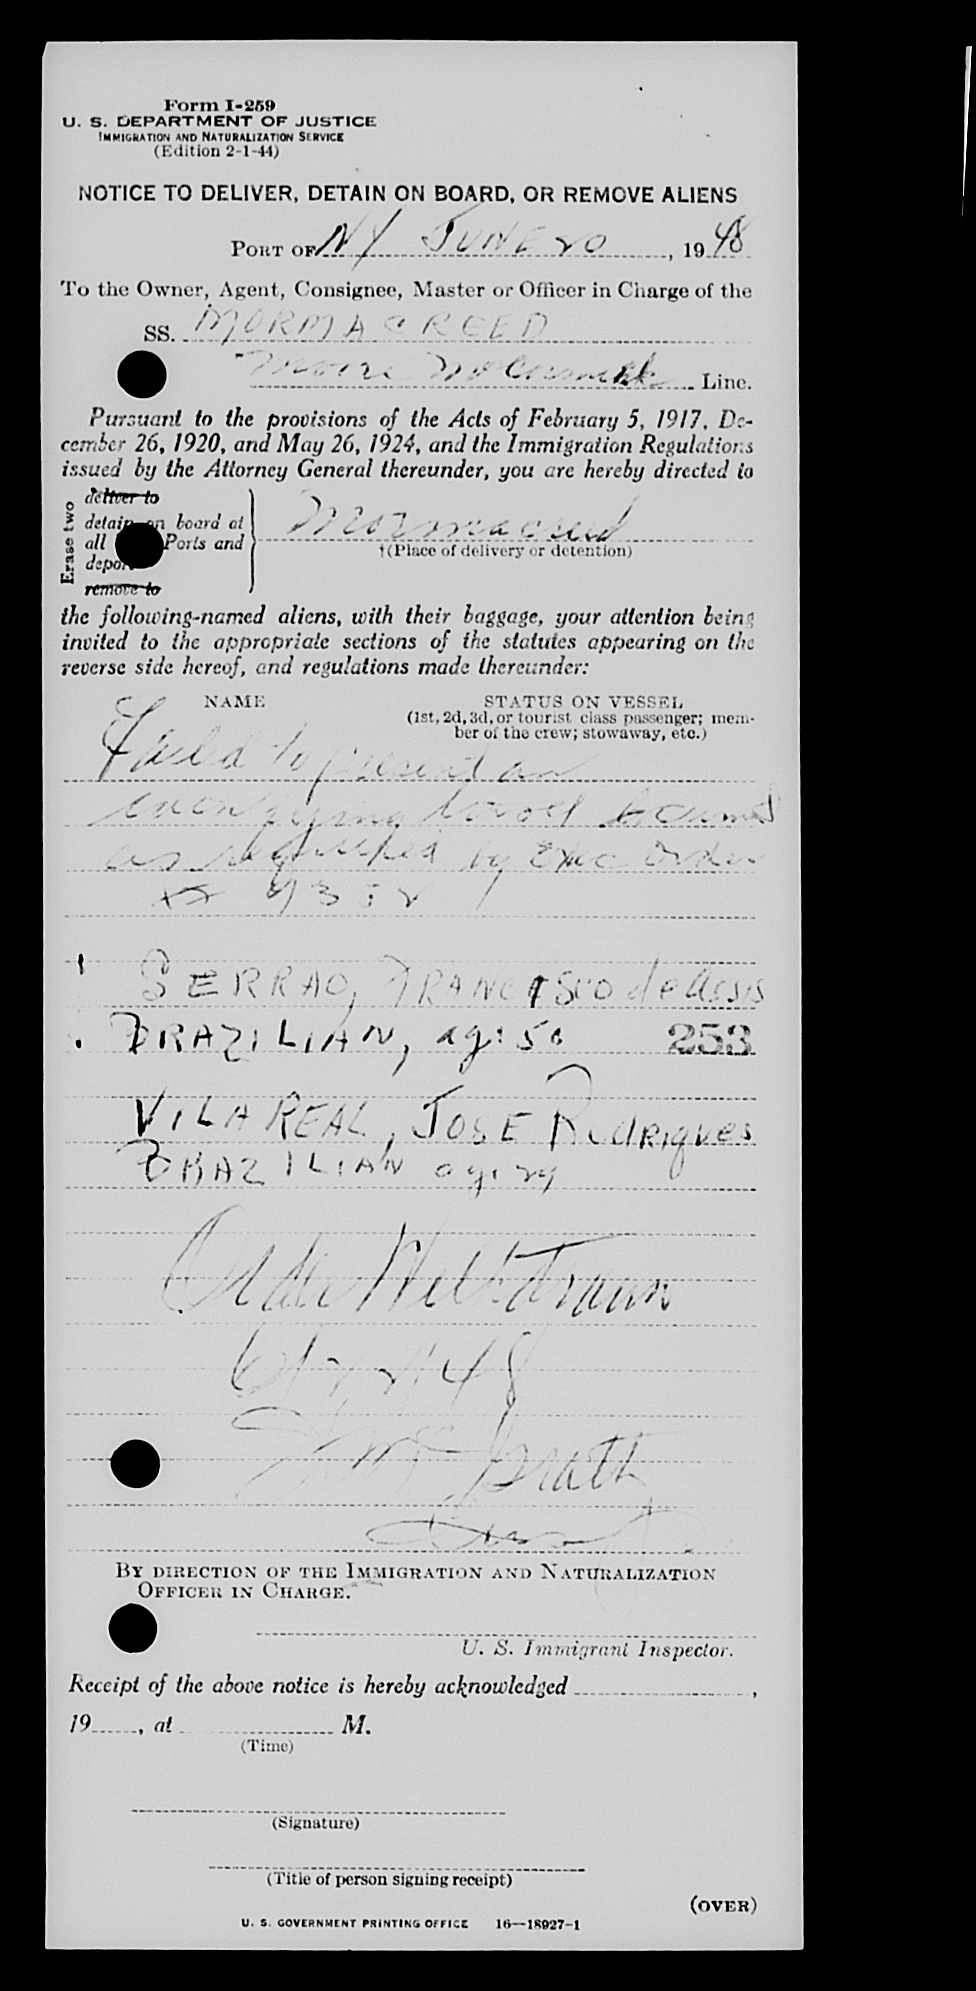 Form I-259
U. S. DEPARTMENT OF JUSTICE
IMMIGRATION AND NATURALIZATION SERVICE
(Edition 2-1-44)
NOTICE TO DELIVER, DETAIN ON BOARD, OR REMOVE ALIENS
PORT OF NY JUNE 20, 1948
To the Owner, Agent, Consignee, Master or Officer in Charge of the
SS. MORMACREED
Moore McCormack Line.
Pursuant to the provisions of the Acts of February 5, 1917, De-
cember 26, 1920, and May 26, 1924, and the Immigration Regulations
issued by the Attorney General thereunder, you are hereby directed to
Erase two
deliver to
detain on board at
all Ports and
deport
remove to
Mormacreed
†(Place of delivery or detention)
the following-named aliens, with their baggage, your attention being
invited to the appropriate sections of the statutes appearing on the
reverse side hereof, and regulations made thereunder:
NAME
STATUS ON VESSEL
(1st, 2d, 3d, or tourist class passenger; mem-
ber of the crew; stowaway, etc.)
Failed to present an
travel
as required by Exec Order
# 9352
SERRAO, FRANCISCO de Assis
BRAZILIAN, age 50 253
VILAREAL, JOSE Rodrigues
BRAZILIAN age 29
Order Withdrawn
BY DIRECTION OF THE IMMIGRATION AND NATURALIZATION
OFFICER IN CHARGE.
U. S. Immigrant Inspector.
Receipt of the above notice is hereby acknowledged ,
19 , at M.
(Time)
(Signature)
(Title of person signing receipt)
(OVER)
U. S. GOVERNMENT PRINTING OFFICE 16—18927-1